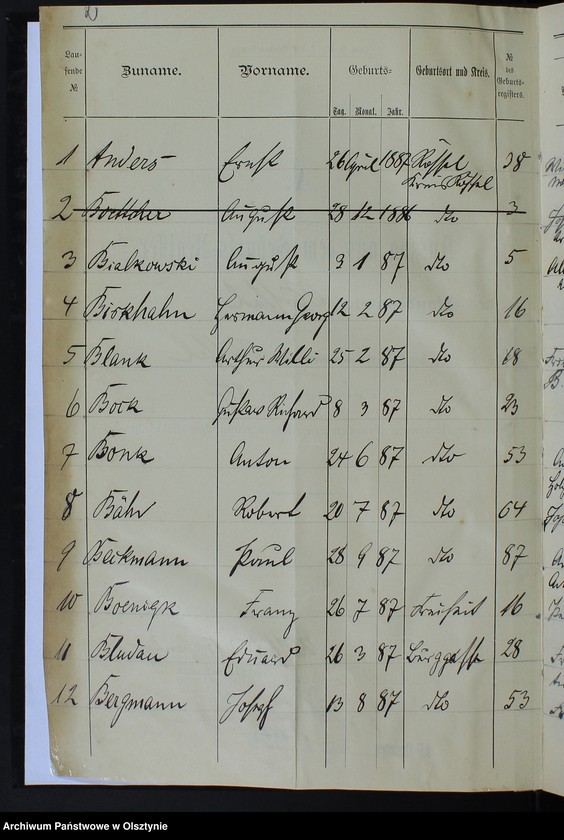 Lau-
fende
№
Zuname.
Vorname.
Geburts-
Tag. Monat. Jahr.
Geburtsort und Kreis.
№
des
Geburts-
registers.
1 Anders Ernst 26 April 1887 Rössel 38
Kreis Rössel
2 Boettcher August 28 12 1886 dto 3
3 Bialkowski August 3 1 87 dto 5
4 Birkhahn Hermann Georg 12 2 87 dto 16
5 Blank Arthur Willi 25 2 87 dto 18
6 Bock Gustav Richard 8 3 87 dto 23
7 Bonk Anton 24 6 87 dto 53
8 Bähr Robert 20 7 87 dto 64
9 Beckmann Paul 28 9 87 dto 87
10 Boenigk Franz 26 7 87 Freiheit 16
11 Bludau Eduard 26 3 87 Bürggasse 28
12 Bergmann Josef 13 8 87 dto 53
Archiwum Państwowe w Olsztynie